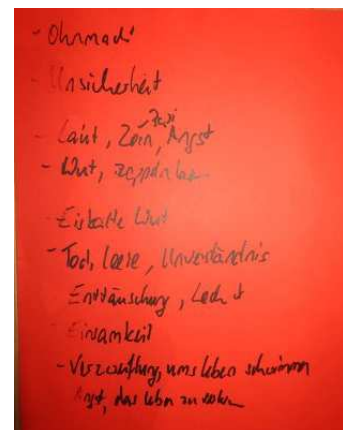 - Ohnmacht
- Unsicherheit
- Laut, Zorn, Angst
- Wut,
- Eiskalte Wut
- Tod, Leere, Unverständnis
Enttäuschung,
- Einsamkeit
- Verzweiflung, ums leben schwimmen
Angst, das leben zu